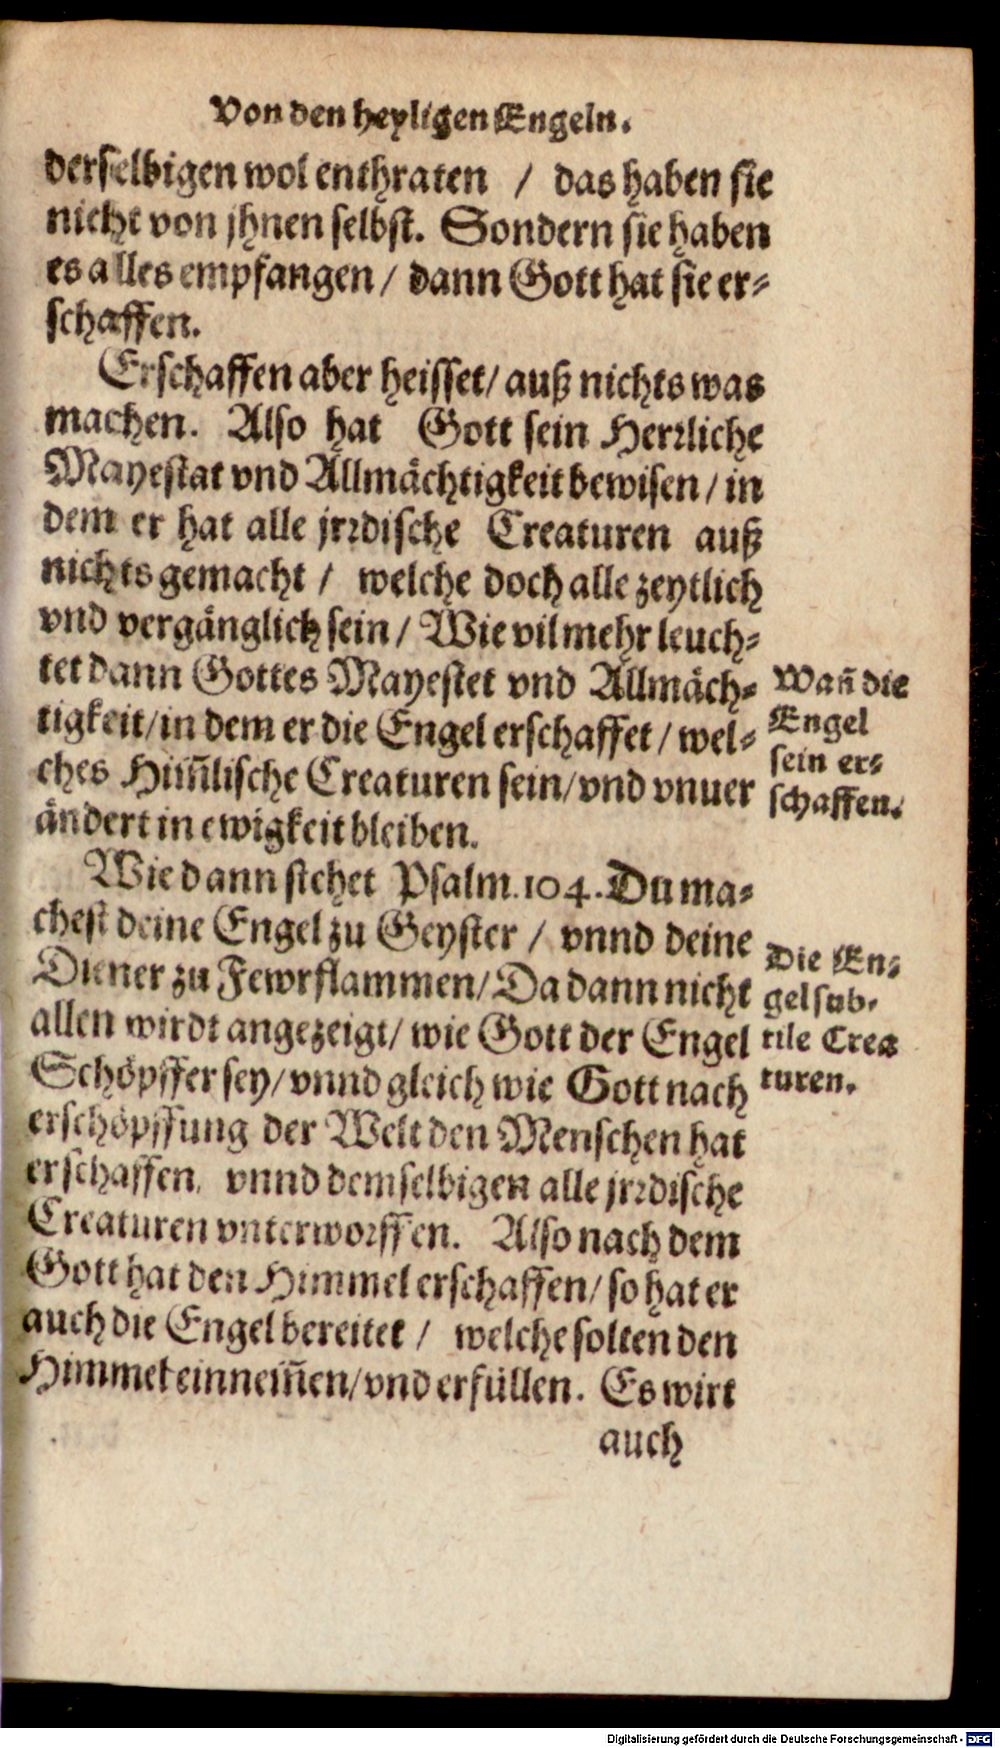 Von den heyligen Engeln.
derselbigen wol enthraten / das haben sie
nicht von jhnen selbst. Sondern sie haben
es alles empfangen / dann Gott hat sie er-
schaffen.
Erschaffen aber heisset / auß nichts was
machen. Also hat Gott sein Herrliche
Mayestat vnd Allmächtigkeit bewisen / in
dem er hat alle jrrdische Creaturen auß
nichts gemacht / welche doch alle zeytlich
vnd vergänglich sein / Wie vil mehr leuch-
tet dann Gottes Mayestet vnd Allmäch-
tigkeit / in dem er die Engel erschaffet / wel-
ches Him̃lische Creaturen sein / vnd vnuer
ändert in ewigkeit bleiben.
Wañ die
Engel
sein er-
schaffen.
Wie dann stehet Psalm. 104. Du ma-
chest deine Engel zu Geyster / vnnd deine
Diener zu Fewrflammen / Da dann nicht
allen wirdt angezeigt / wie Gott der Engel
Schöpffer sey / vnnd gleich wie Gott nach
erschöpffung der Welt den Menschen hat
erschaffen, vnnd demselbigen alle jrrdische
Creaturen vnterworffen. Also nach dem
Gott hat den Himmel erschaffen / so hat er
auch die Engel bereitet / welche solten den
Himmel einnem̃en / vnd erfüllen. Es wirt
Die En-
gel sub-
tile Crea
turen.
auch
Digitalisierung gefördert durch die Deutsche Forschungsgemeinschaft - DFG